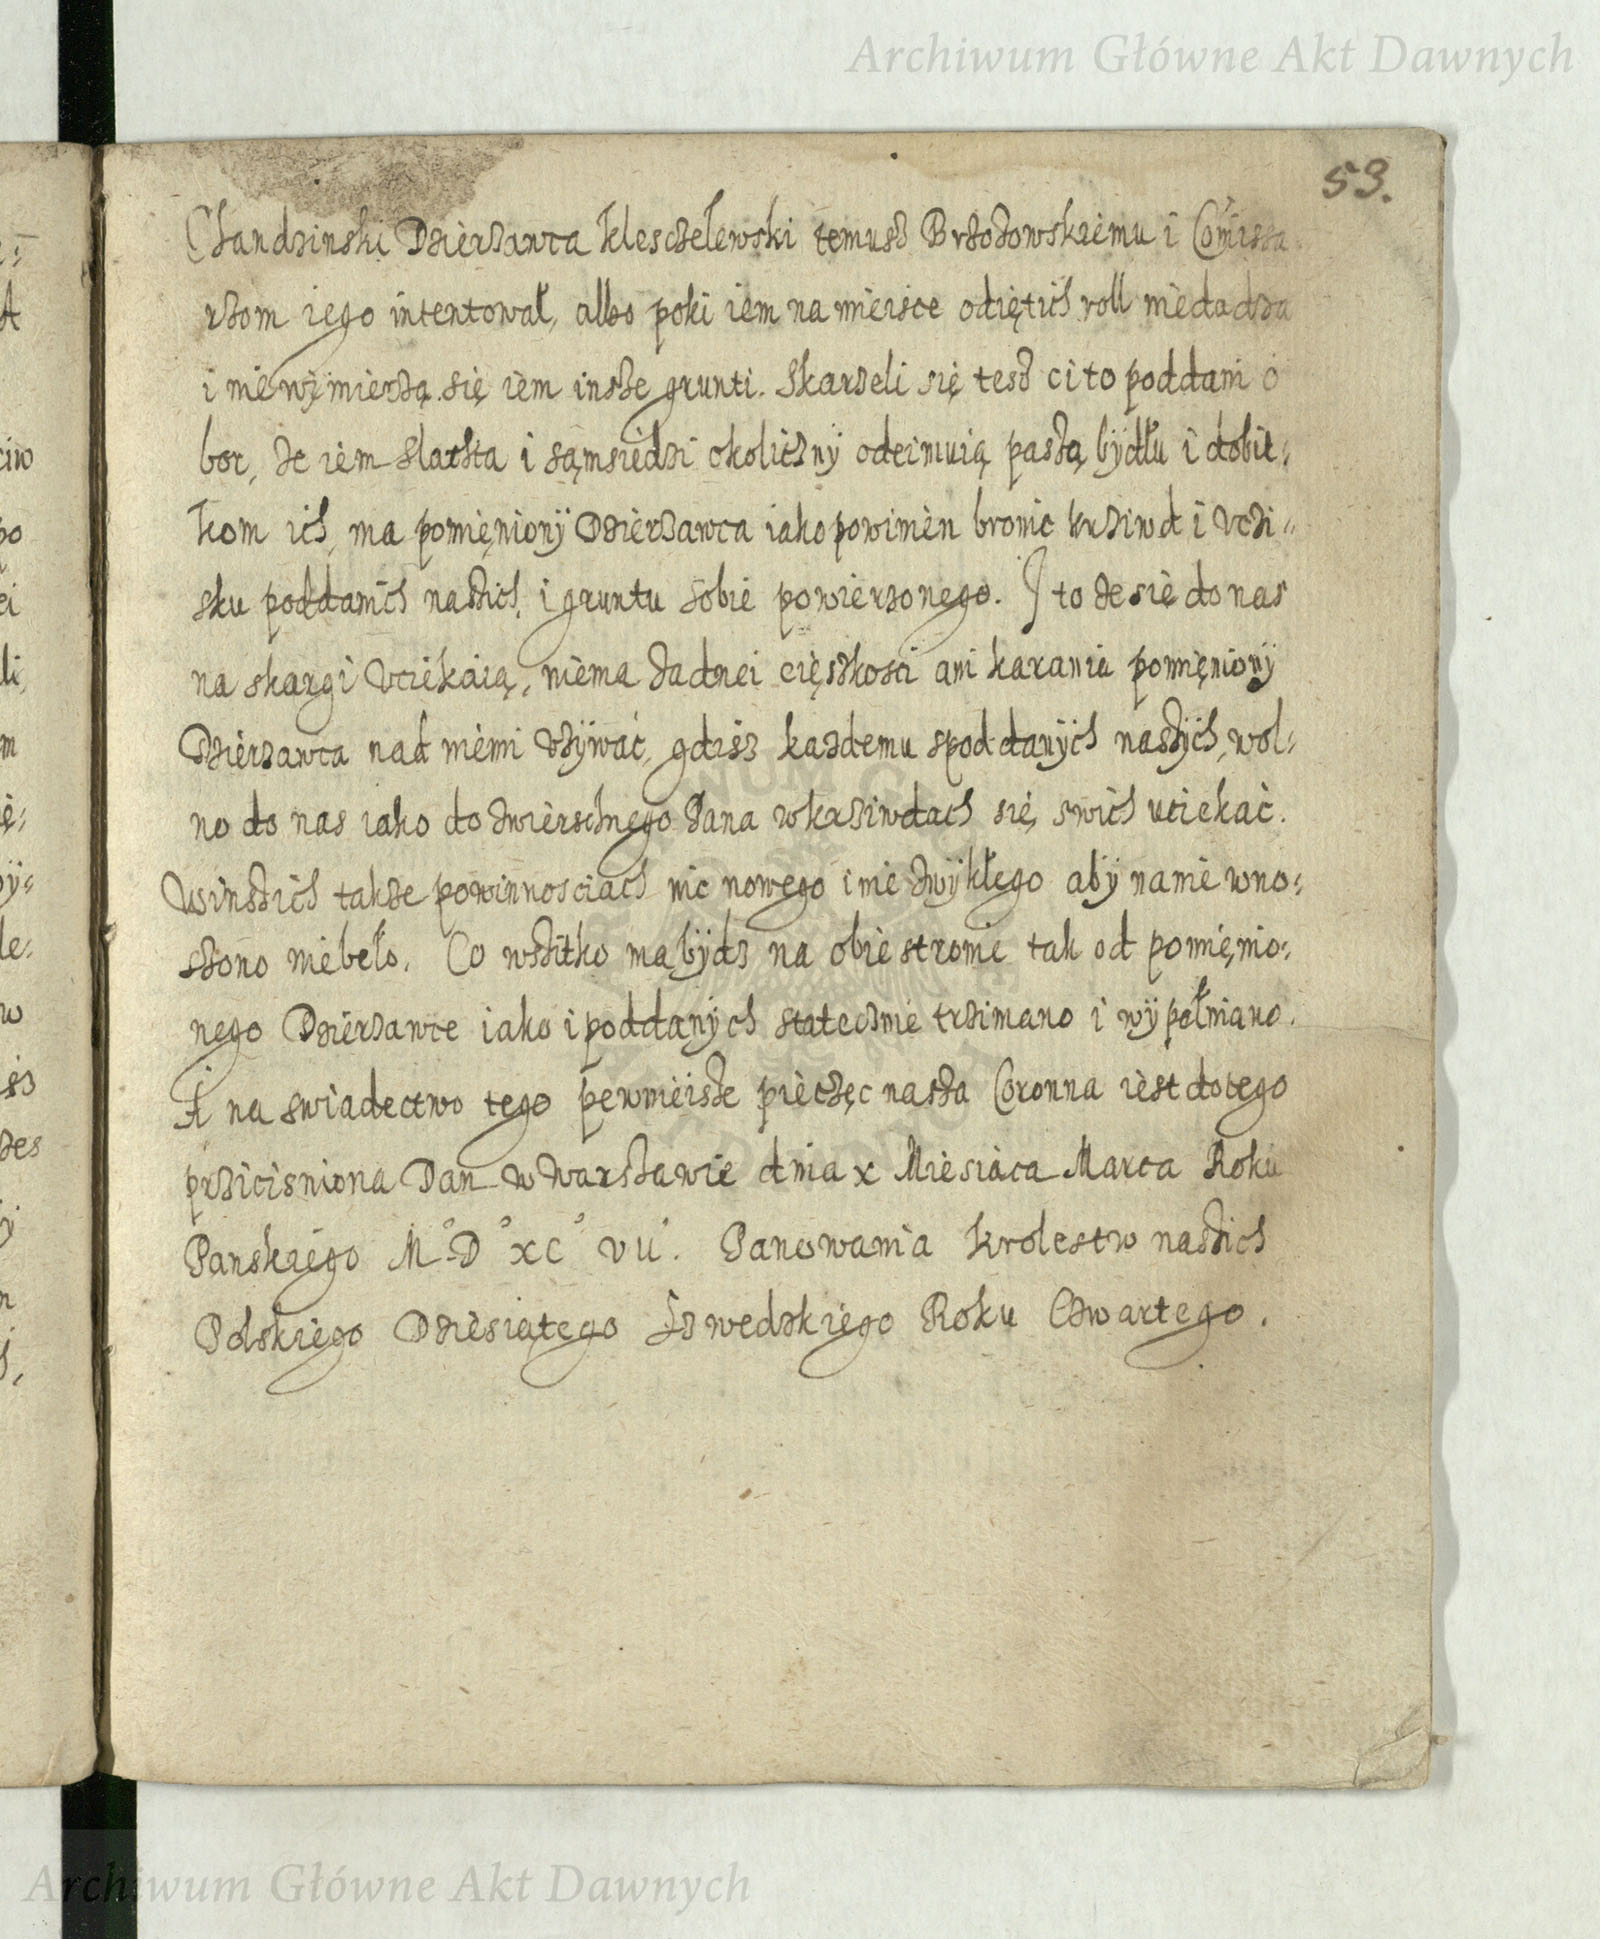 Archiwum Główne Akt Dawnych
53.
Chandzinski Dzierzawca Kleszczelewski temusz Brzozowskiemu i Comissa
rzom iego intentował, albo poki iem na mieisce odiętich roll niedadzą
i niewymierzą się iem insze grunti. Skarzeli się tesz ci to poddani o
bor, ze iem slachta i sąmsiedzi okoliczny odeimuią paszą bydłu i dobit-
kom ich, ma pomięniony Dzierzawca iako powinien bronic krziwd i vczi-
sku poddanich naszich, i gruntu sobie powierzonego. I to ze się do nas
na skargi vciekaią, niema zadnei cięszkosci ani karania pomięniony
Dzierzawca nad niemi vzywać, gdisz kazdemu spoddanych naszych, wol-
no do nas iako do zwierschnego Pana wkrziwdach się swich uciekać.
Winszich takze powinnosciach nic nowego i nie zwykłego aby nanie wno-
szono niebeło. Co wszitko ma bydz na obie stronie tak od pomięnio-
nego Dzierzawce iako i poddanych statecznie trzimano i wypełniano.
A na swiadectwo tego pewnieisze pieczęc nasza Coronna iest do tego
przicisniona Dan w Warszawie dnia x Miesiąca Marca Roku
Panskiego M° D° XC° VII°. Panowania Krolestw naszich
Polskiego Dziesiątego Szwedzkiego Roku Czwartego.
Archiwum Główne Akt Dawnych